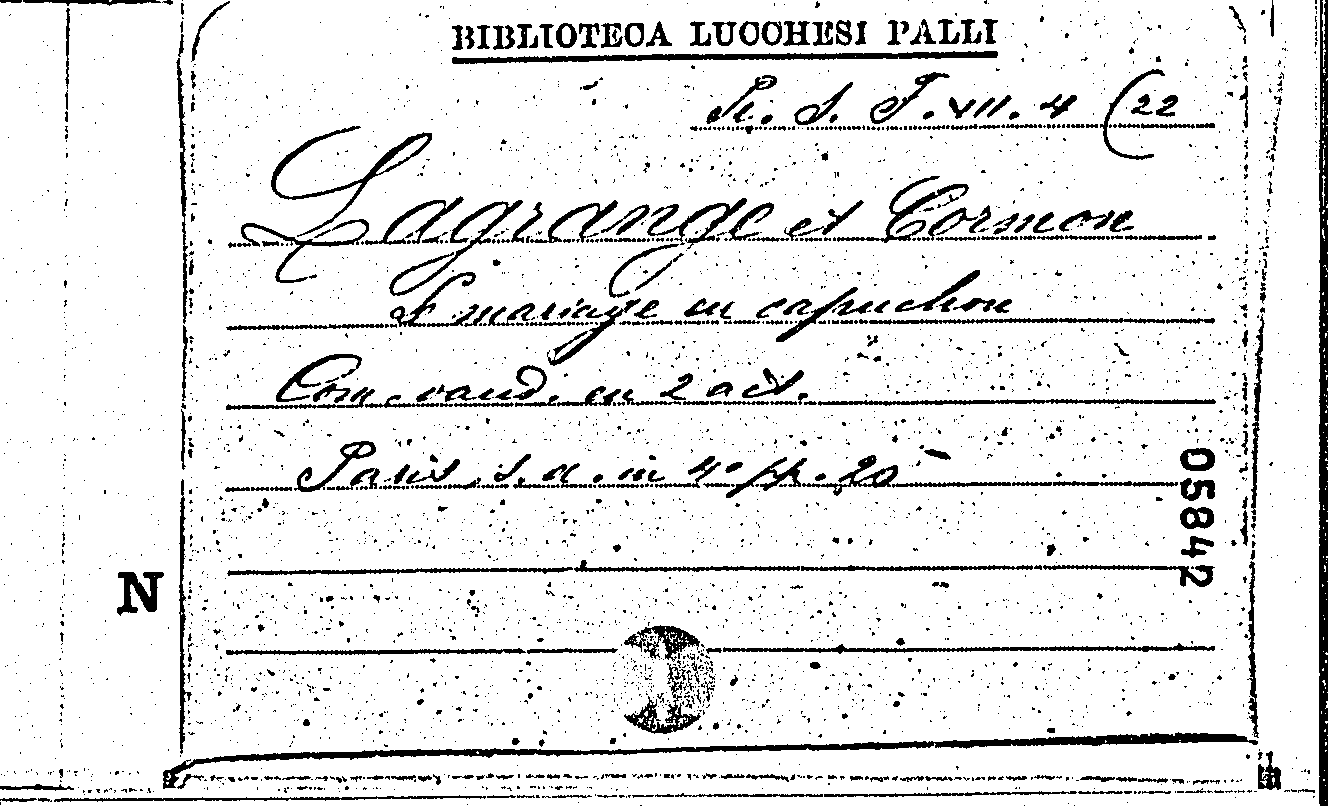 BIBLIOTECA LUCCHESI PALLI
Pr. S. T. VII. 4 (22
Lagrange et Cormon
L mariage en capuchon
Com. vaud. en 2 act.
Paris, s. a. in 4° pp. 20
05842
N